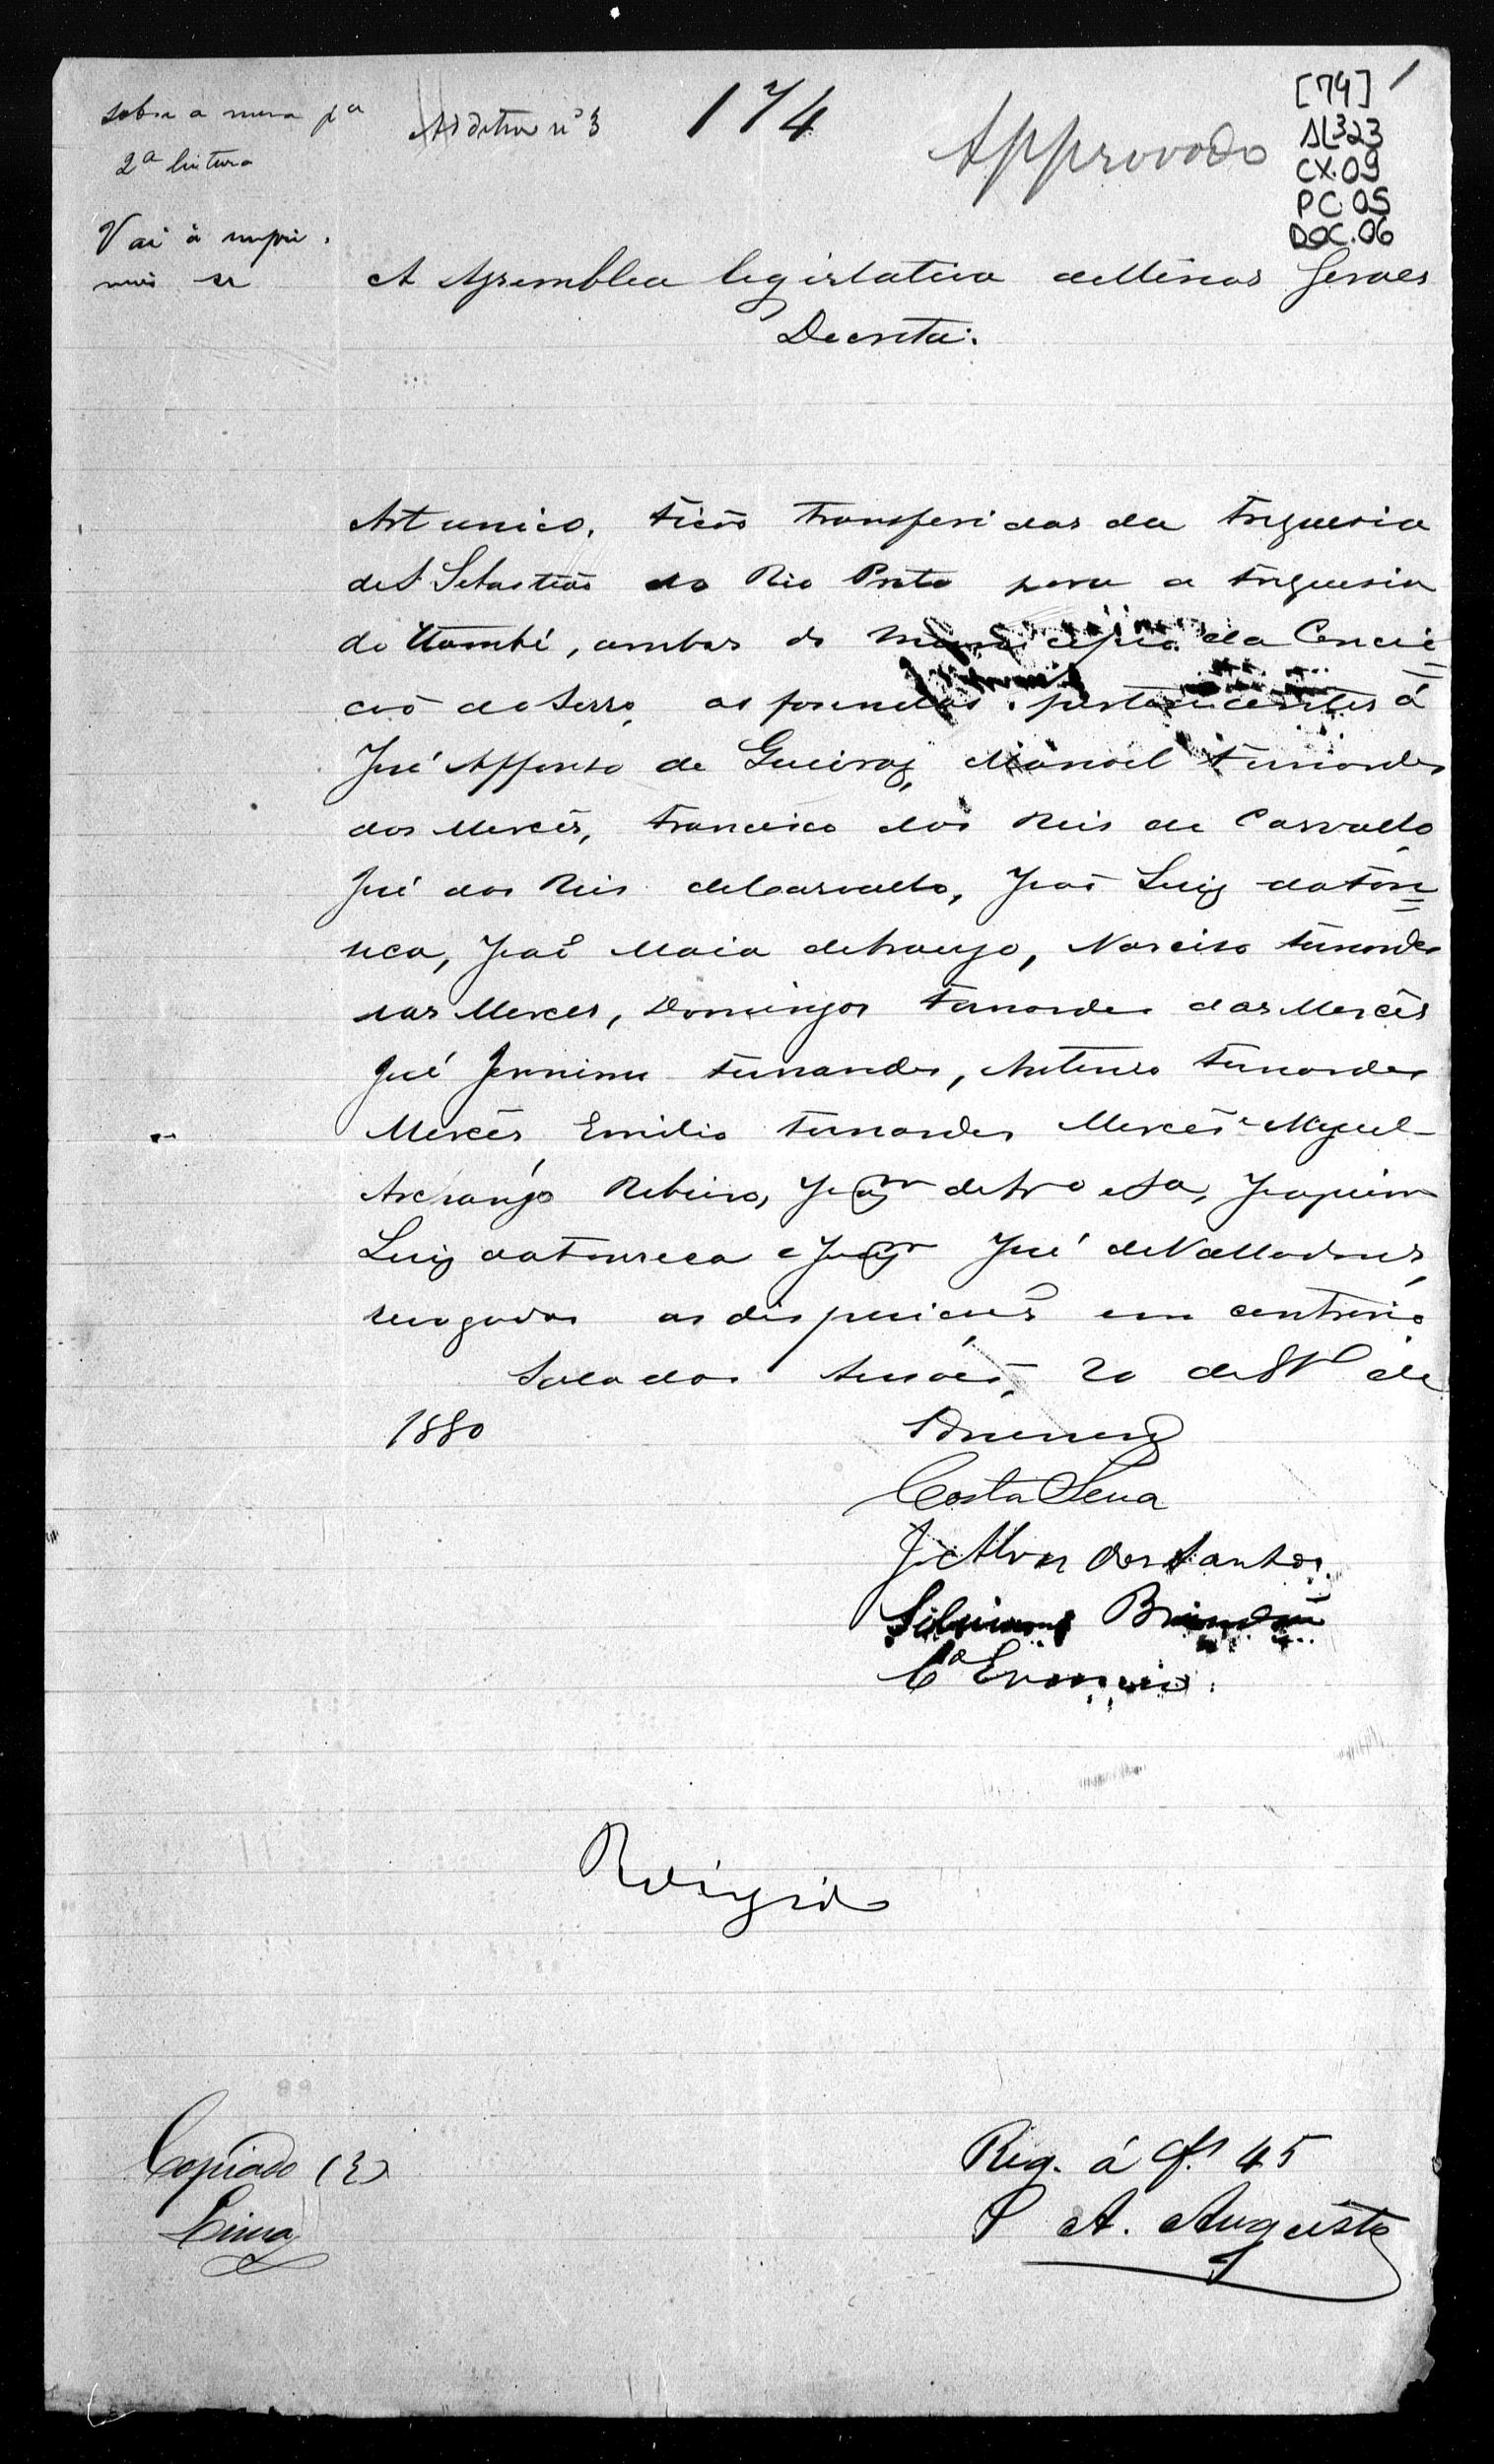 sobre a mesa pª
2ª leitura
Vai à impri-
mir se
Additivo nº 3
174
Approvado
[74] 1
AL323
CX.09
PC 05
DOC.06
A Assemblea legislativa de Minas Geraes
Decreta:
Art unico. Ficão transferidas da Freguesia
de S. Sebastião do Rio Preto para a Freguesia
do Itambé, ambas do Municipio da Concei=
ção do Serro, as fasendas pertencentes á
José Affonso de Queiroz, Manoel Fernandes
das Mercês, Francisco dos Reis de Carvalho,
José dos Reis de Carvalho, João Luiz da Fon=
seca, José Maia de Araujo, Narciso Fernandes
das Merces, Domingos Fernandes das Mercês
José Jeronimo Fernandes, Antonio Fernandes
Mercês, Emilio Fernandes Mercês e Miguel
Archanjo Ribeiro, Joaqm de Sá, Joaquim
Luiz da Fonseca e Joaqm José de Valladares,
revogadas as disposições em contrario.
Sala das sessões, 20 de 8bro de
1880
Costa Sena
J. Alves dos Santos
Silviano Brandão
Redigido
Copiado (E)
Lima
Reg. á fs. 45
A. Augusto